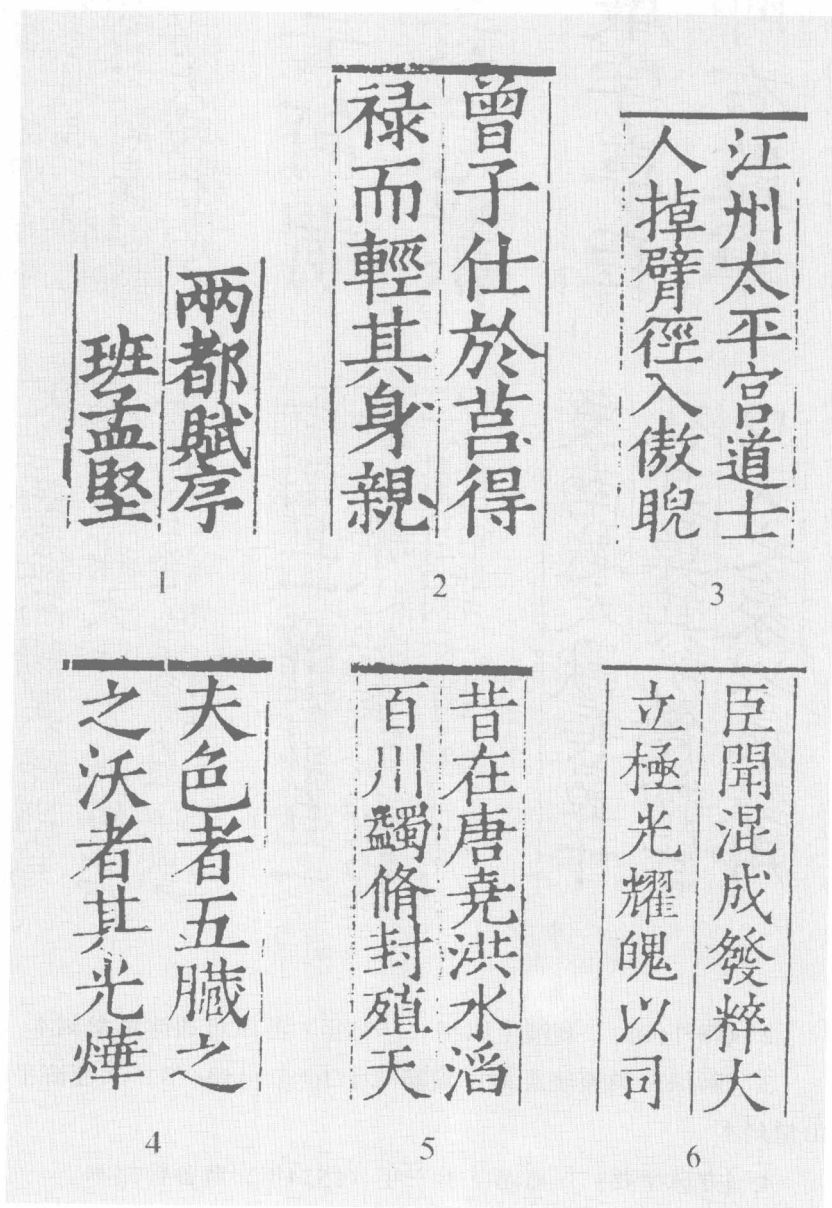 兩都賦序
班孟堅
1
曾子仕於莒得
禄而輕其身親
2
江州太平宮道士
人掉臂徑入傲睨
3
夫色者五臟之
之沃者其光燁
4
昔在唐堯洪水滔
百川蠲脩封殖天
5
臣聞混成發粹大
立極光耀魄以司
6